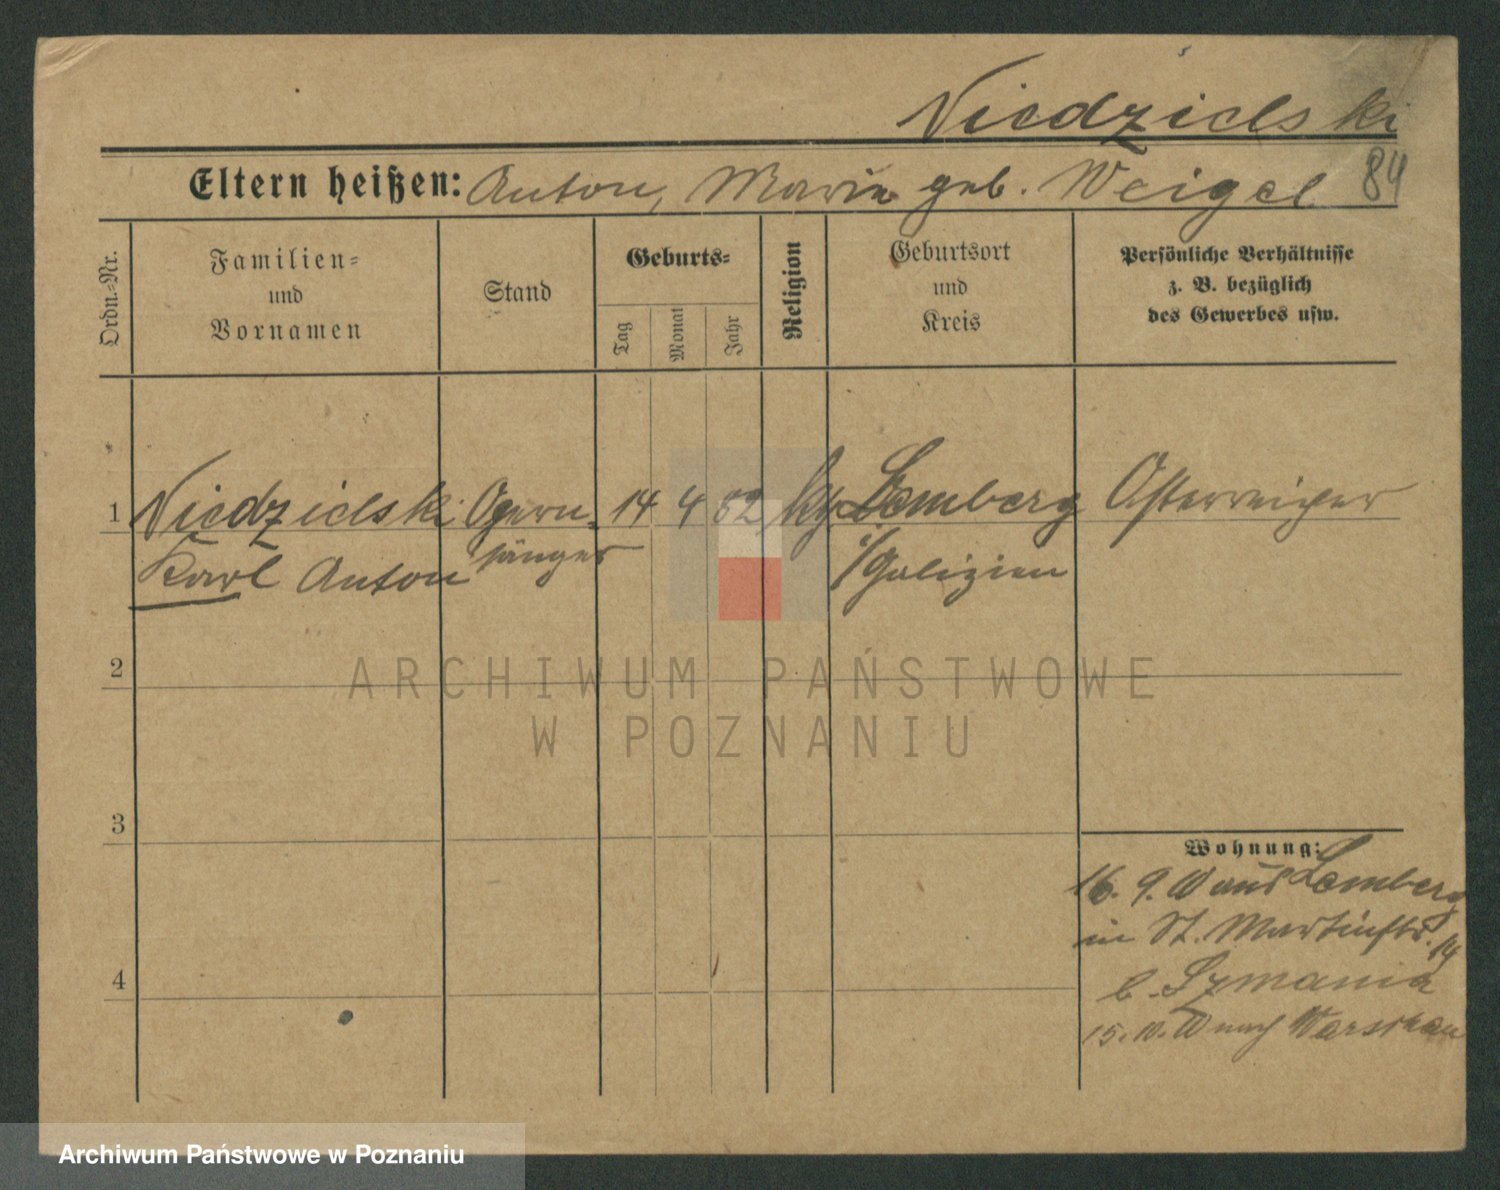 Niedzielski
Eltern heißen: Anton, Marie geb. Weigel 84
Ordn.-Nr.
Familien-
und
Vornamen
Stand
Geburts-
Tag
Monat
Jahr
Religion
Geburtsort
und
Kreis
Persönliche Verhältnisse
z. B. bezüglich
des Gewerbes usw.
1 Niedzielski Opern- 14 4 52 Lemberg Österreicher
Karl Anton sänger i/Galizien
2
3
4
Wohnung:
16. 9. aus Lemberg
in St. Martinstr. 14
b.
15. 10. nach Warschau
ARCHIWUM PAŃSTWOWE
W POZNANIU
Archiwum Państwowe w Poznaniu